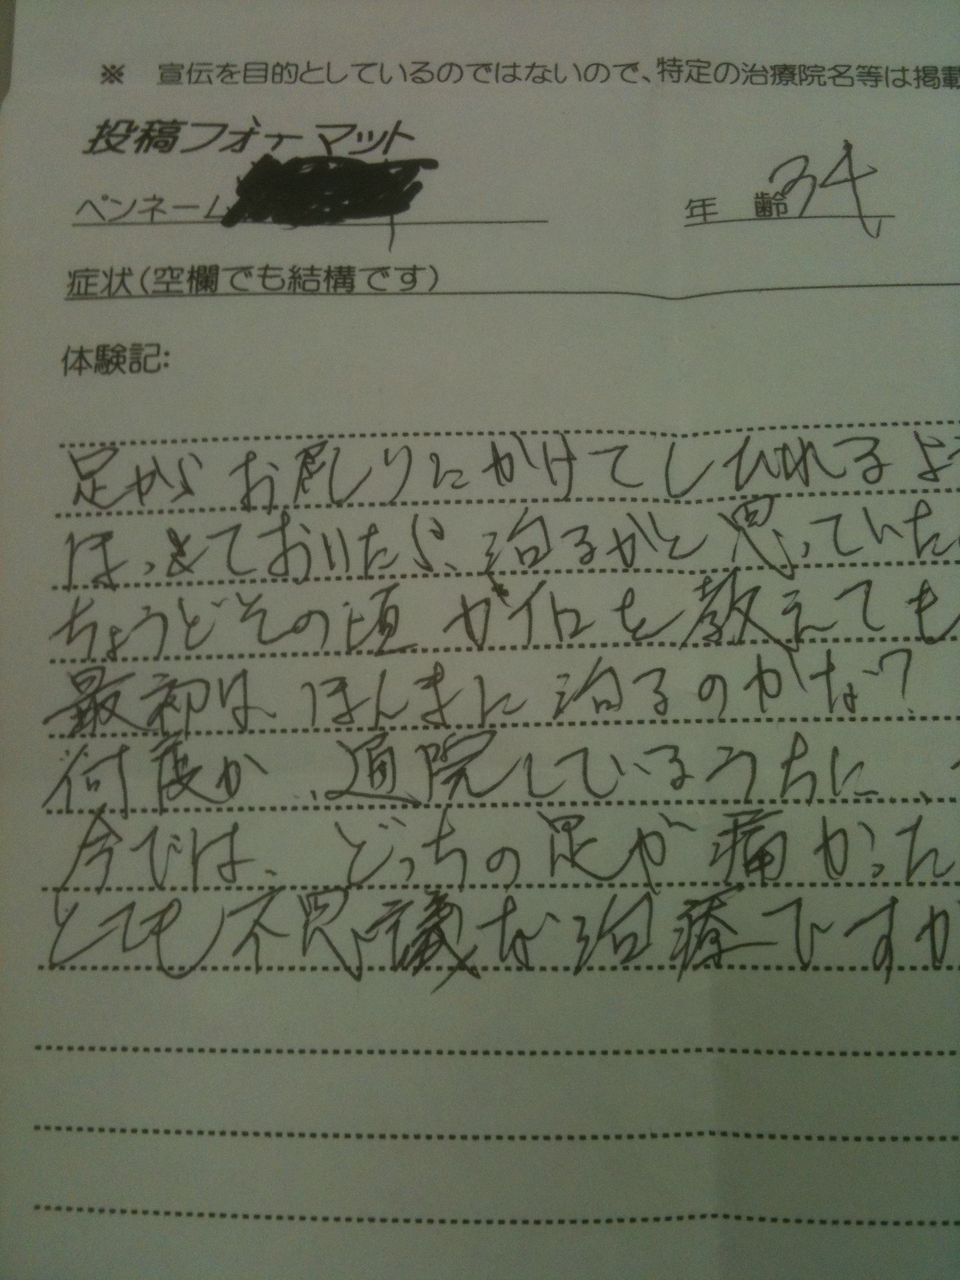 ※ 宣伝を目的としているのではないので、特定の治療院名等は掲載
投稿フォーマット
ペンネーム
年 齢 34
症状(空欄でも結構です)
体験記:
足からお尻りにかけてしびれるよう
ほっとておいたら、治るかと思っていた
ちょうどその頃 がイロを教えても
最初は、ほんまに治るのかな?
何度か、通院しているうちに、
今では、どっちの足が痛かった
とても不思議な治療ですが